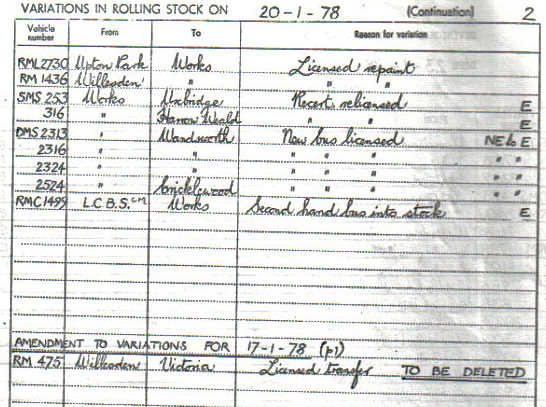 VARIATIONS IN ROLLING STOCK ON 20-1-78 (Continuation) 2
Vehicle number From To Reason for variation
RML 2730 Upton Park Works Licensed repaint
RM 1436 Willesden " " "
SMS 253 Works Uxbridge Recert relicensed E
316 " Harrow Weald " " E
DMS 2313 " Wandsworth New bus licensed NE to E
2316 " " " " " " "
2324 " " " " " " "
2524 " Cricklewood " " " " "
RMC 1499 L.C.B.S. Works Second hand bus into stock E
AMENDMENT TO VARIATIONS FOR 17-1-78 (p1)
RM 475 Willesden Victoria Licensed transfer TO BE DELETED